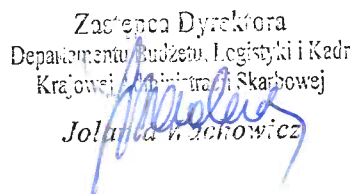 Zastępca Dyrektora
Departamentu Budżetu, Logistyki i Kadr
Krajowej Administracji Skarbowej
Jolanta Wachowicz